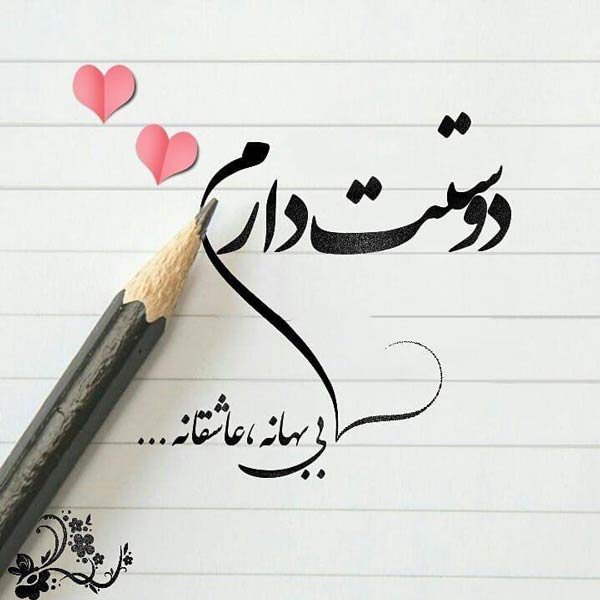 دوستت دارم
بی بهانه ، عاشقانه ...